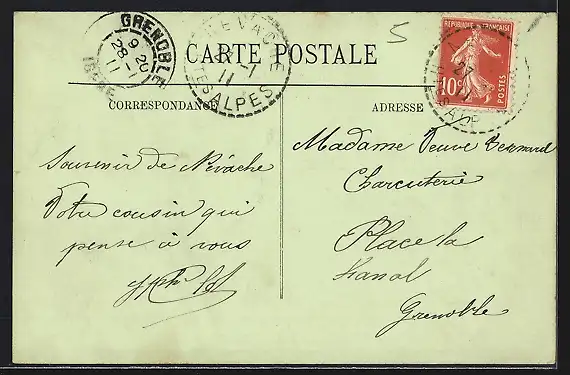 GRENOBLE
9 20
28 -1
11
ISERE
NEVACHE
11
HTES ALPES
CARTE POSTALE
5
REPUBLIQUE FRANCAISE
10c
POSTES
27
CORRESPONDANCE
ADRESSE
Souvenir de Névache
Votre cousin qui
pense à vous
Madame Veuve Bernard
Charcuterie
Place la
Grenoble